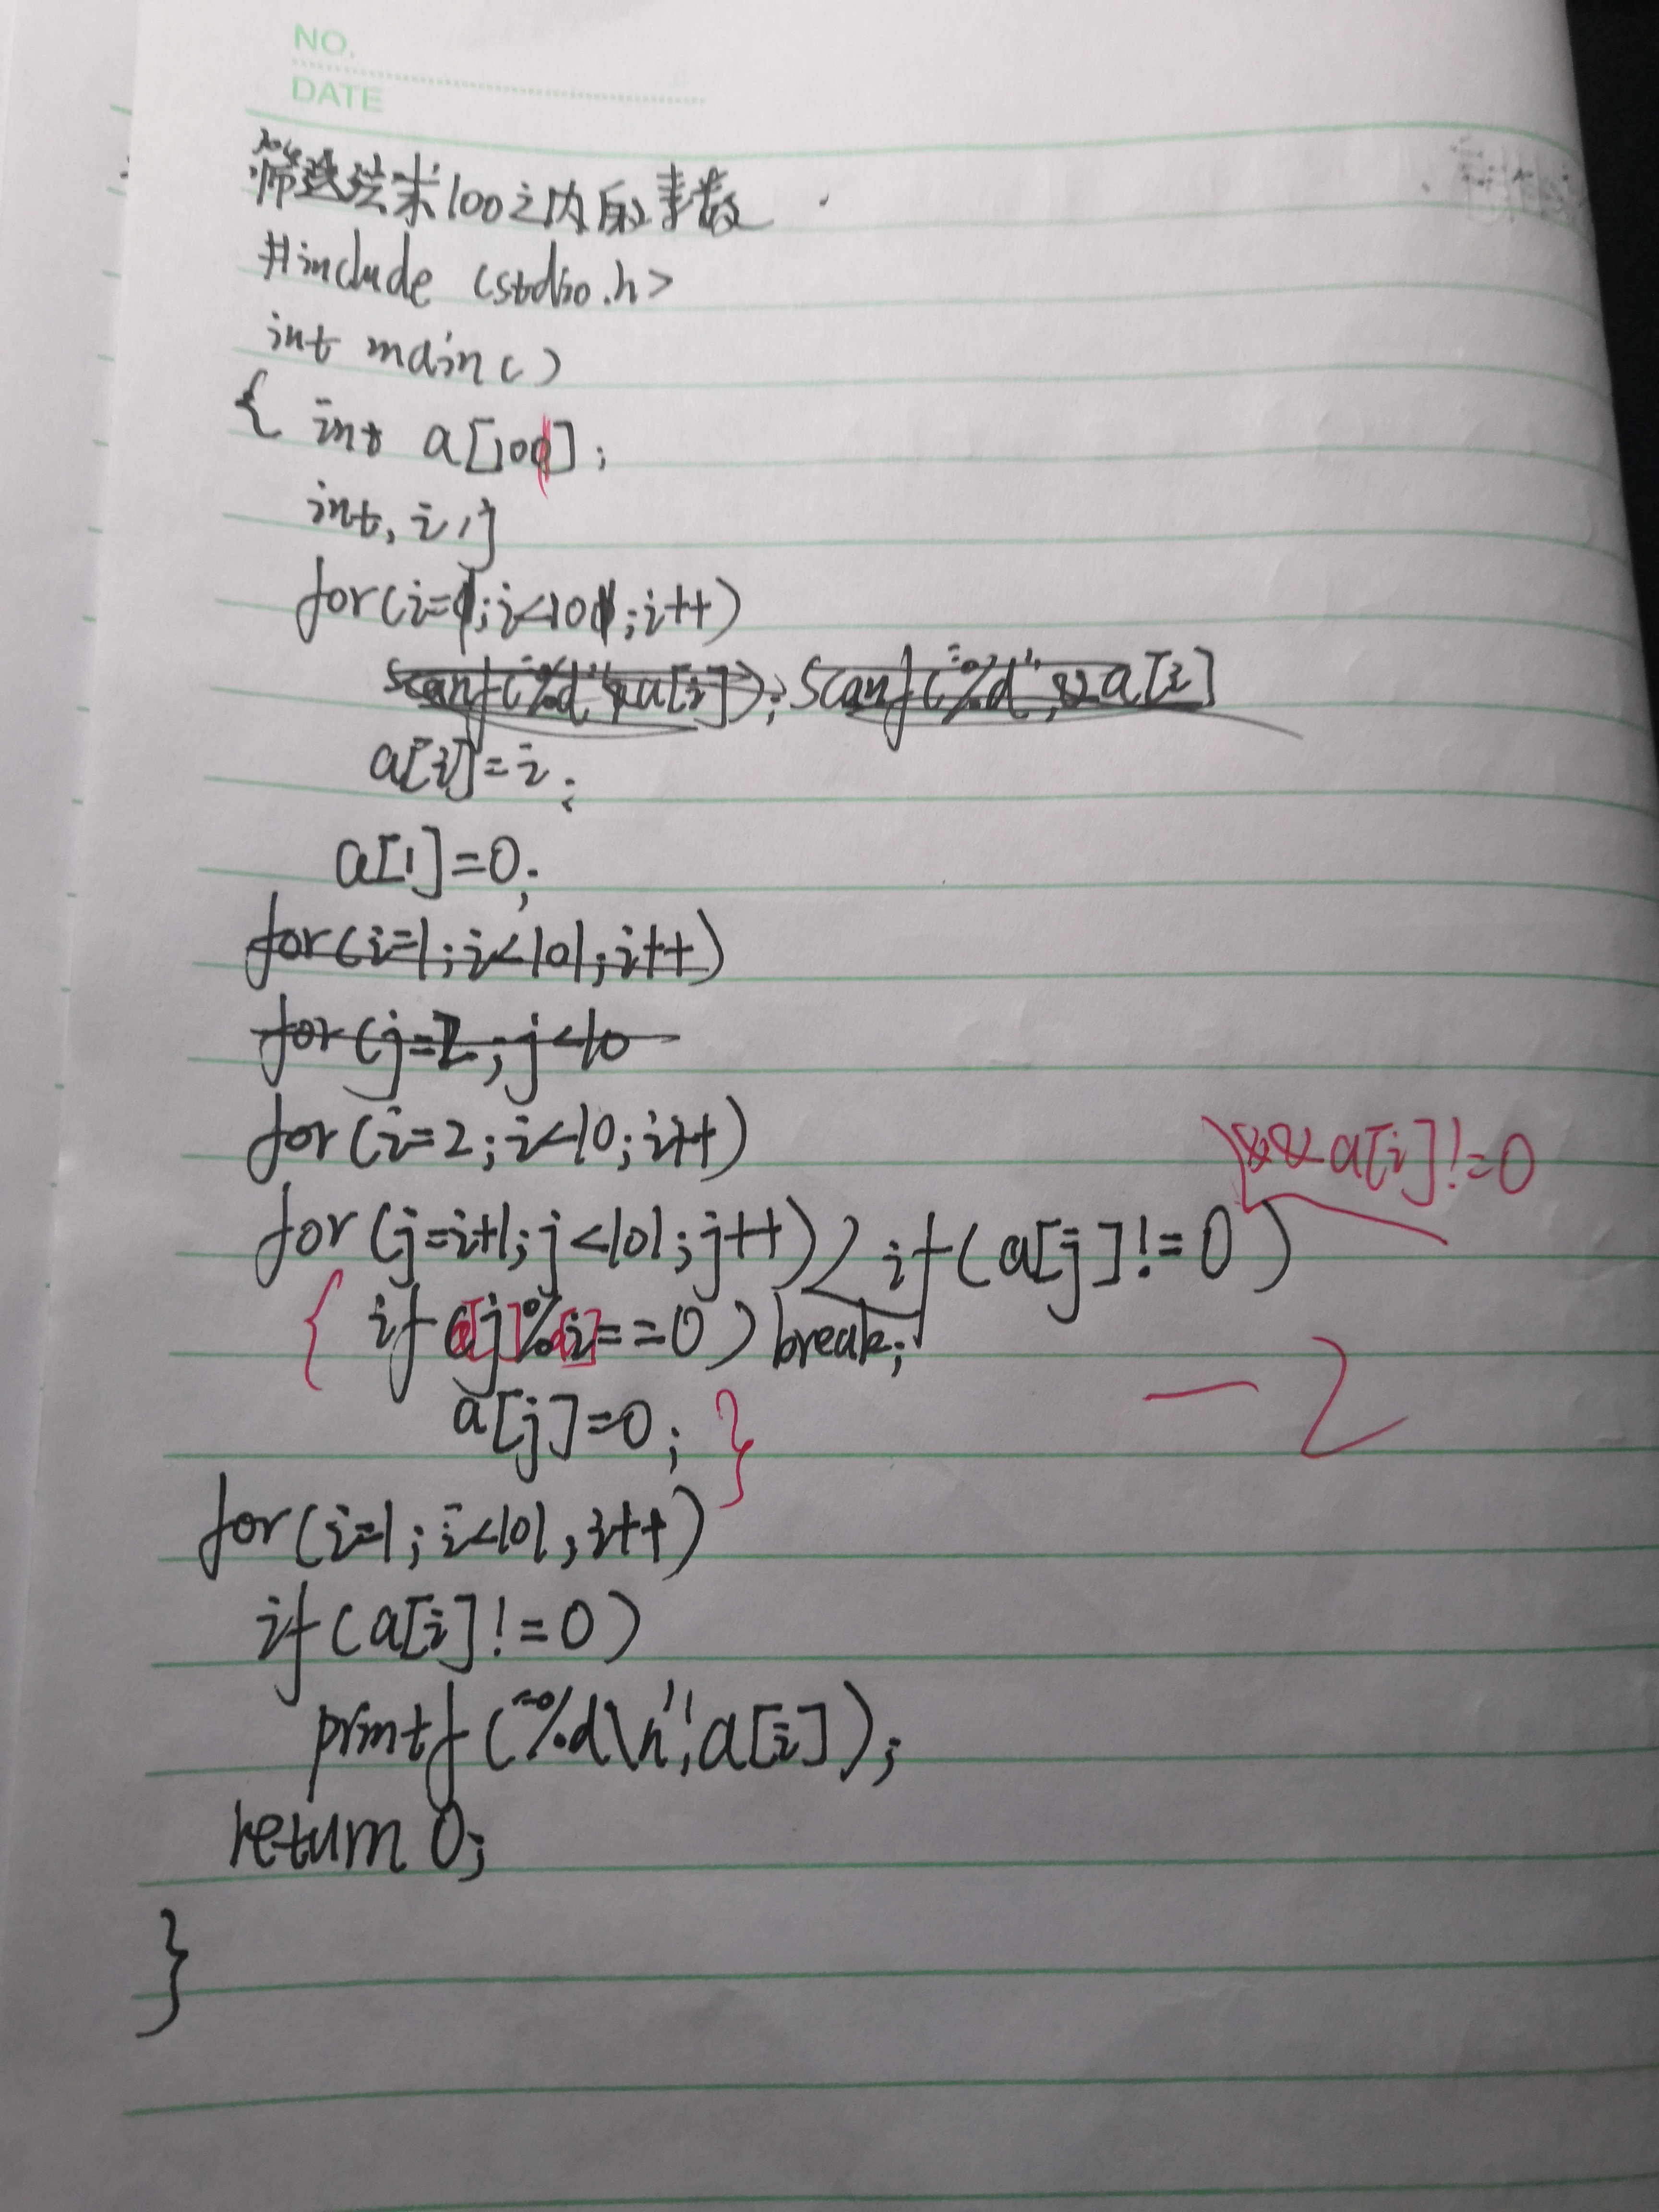 NO.
DATE
筛选法求100之内的素数
#include <stdio.h>
int main()
{ int a[101];
int, i,j
for(i=1;i<101;i++)
scanf("%d",&a[i]);scanf("%d",&a[i]
a[i]=i;
a[1]=0;
for(i=1;i<101;i++)
for(j=2;j<10
for(i=2;i<10;i++)
&&a[i]!=0
for(j=i+1;j<101;j++) if(a[j]!=0)
{ if(a[j]%a[i]==0)break;
a[j]=0; }
-2
for(i=1;i<101;i++)
if(a[i]!=0)
printf("%d\n",a[i]);
return 0;
}